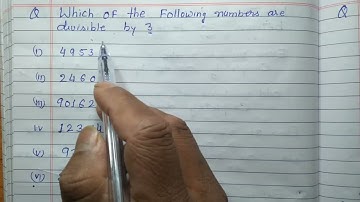 Q Which of the Following numbers are Q
divisible by 3
(i) 4953
(ii) 2460
(iii) 90162
iv 123 4
(v) 9
(vi)